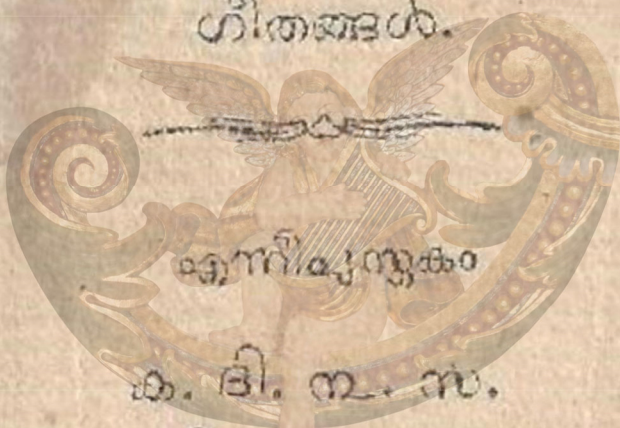 ഗീതങ്ങൾ.
എന്നീപുസ്തകം
ക. ദി. മ്പ. സ.